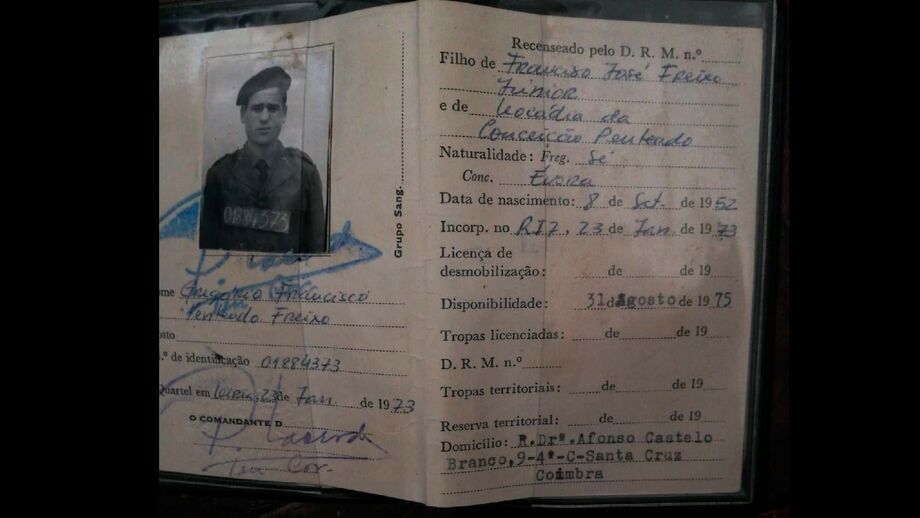 01884373
Grupo Sang.
ome Gregório Francisco
Penteado Freixo
osto
.º de identificação 01884373
Quartel em Leiria, 23 de Jan. de 1973
O COMANDANTE D
Ten Cor.
Recenseado pelo D. R. M. n.º
Filho de Francisco José Freixo
Júnior
e de Leocádia da
Conceição Penteado
Naturalidade: Freg. Sé
Conc. Évora
Data de nascimento: 8 de Set. de 1952
Incorp. no RI7, 23 de Jan. de 1973
Licença de
desmobilização: de de 19
Disponibilidade: 31 de Agosto de 1975
Tropas licenciadas: de de 19
D. R. M. n.º
Tropas territoriais: de de 19
Reserva territorial: de de 19
Domicílio: R.Drª.Afonso Castelo
Branco,9-4º-C-Santa Cruz
Coimbra